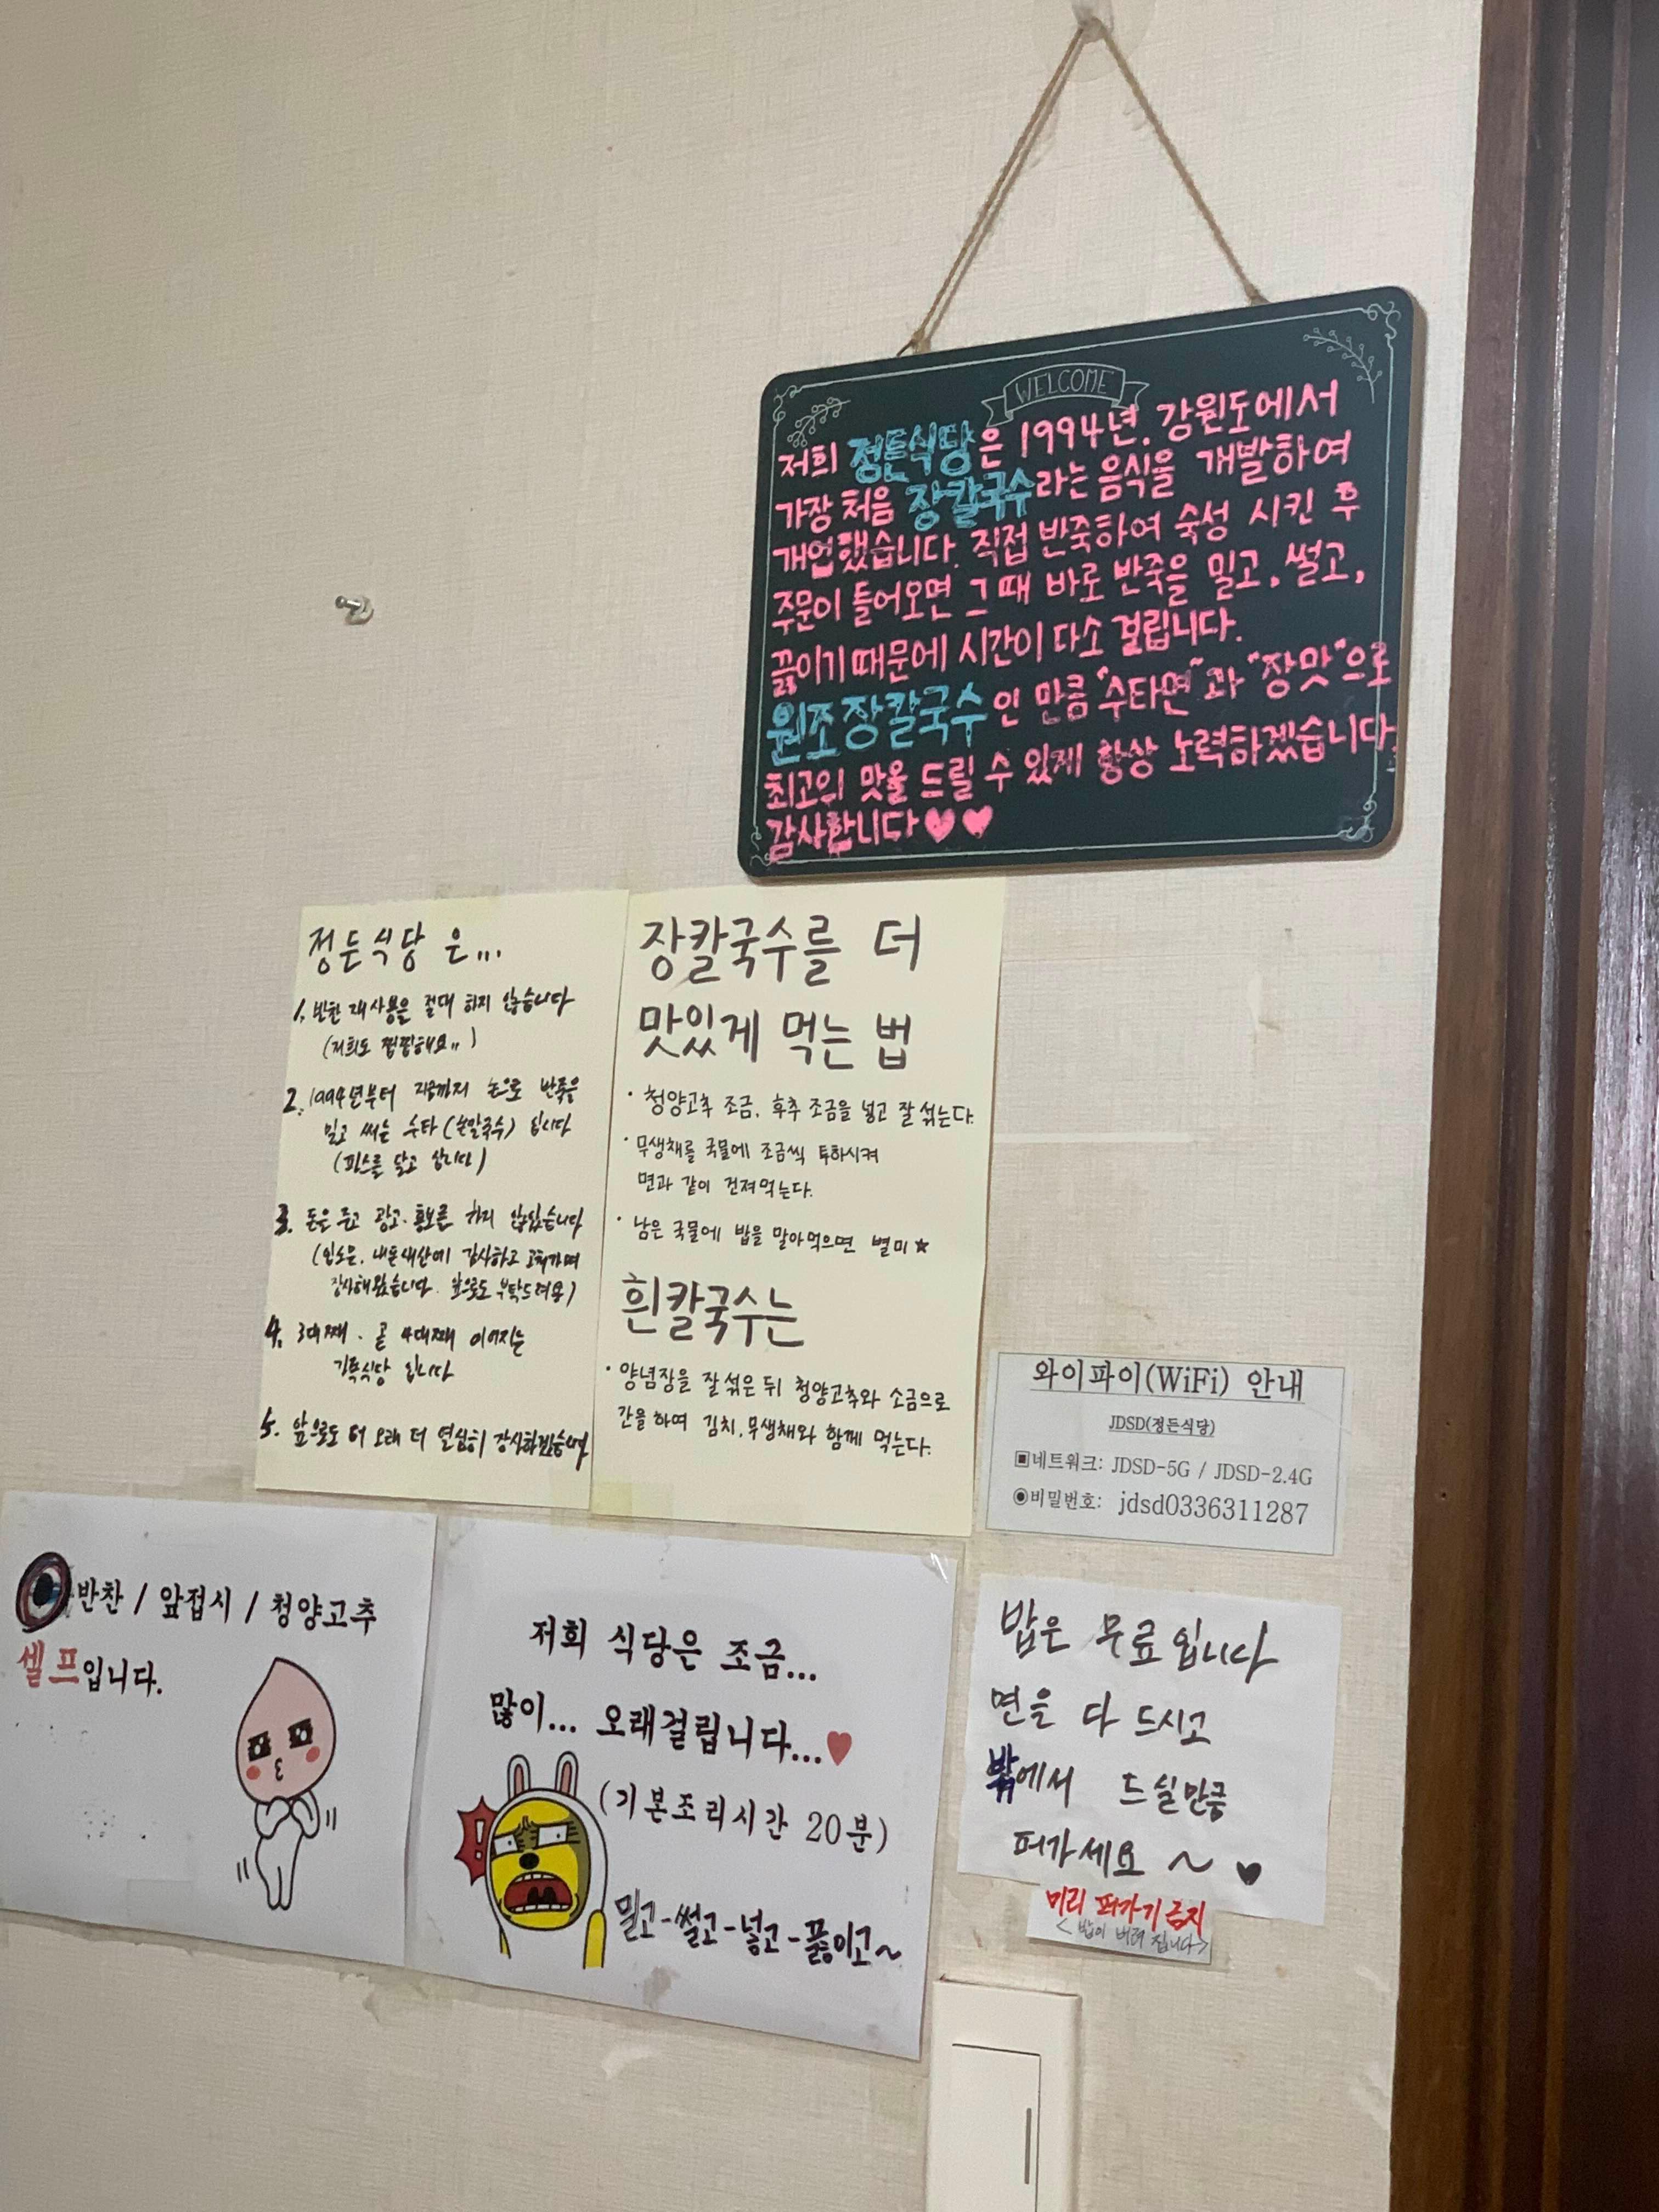 WELCOME
저희 정든식당은 1994년. 강원도에서
가장 처음 장칼국수라는 음식을 개발하여
개업했습니다. 직접 반죽하여 숙성 시킨 후
주문이 들어오면 그때 바로 반죽을 밀고, 썰고,
끓이기 때문에 시간이 다소 걸립니다.
원조장칼국수인 만큼 "수타면"과 "장맛"으로
최고의 맛을 드릴 수 있게 항상 노력하겠습니다.
감사합니다♥♥
정든식당 은...
1. 반찬 재사용을 절대 하지 않습니다
(저희도 찝찝해요..)
2. 1994년부터 지금까지 손으로 반죽을
밀고 써는 수타(손칼국수) 입니다
(파스를 달고 삽니다)
3. 돈을 주고 광고·홍보를 하지 않았습니다
(입소문, 내돈내산에 감사하고
장사해왔습니다. 앞으로도 부탁드려요)
4. 3대째. 곧 4대째 이어지는
가족식당 입니다
5. 앞으로도 더 오래 더 열심히 장사하겠습니다
장칼국수를 더
맛있게 먹는 법
· 청양고추 조금, 후추 조금을 넣고 잘 섞는다.
· 무생채를 국물에 조금씩 투하시켜
면과 같이 건져먹는다.
· 남은 국물에 밥을 말아먹으면 별미★
흰칼국수는
· 양념장을 잘 섞은 뒤 청양고추와 소금으로
간을 하며 김치, 무생채와 함께 먹는다.
와이파이(WiFi) 안내
JDSD(정든식당)
▣네트워크: JDSD-5G / JDSD-2.4G
◉비밀번호: jdsd0336311287
반찬 / 앞접시 / 청양고추
셀프입니다.
저희 식당은 조금...
많이... 오래걸립니다...♥
(기본조리시간 20분)
밀고-썰고-넣고-끓이고~
밥은 무료입니다
면을 다 드시고
밖에서 드실만큼
퍼가세요~♥
미리 퍼가기 금지
<밥이 버려 집니다>